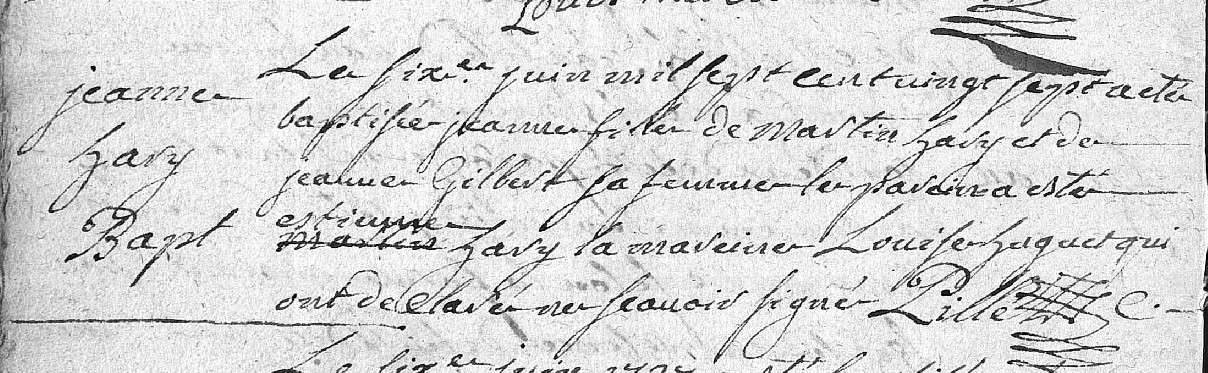 jeanne
hary
Bapt
Le sixe.en juin mil sept cent vingt sept a eté
baptisée jeanne fille de Martin hary et de
jeanne Gilbert sa femme le pareina esté
estienne
Martin hary la mareine Louise huguet qui
ont declaré ne scauoir signé Pille C.
Le sixe.en juin